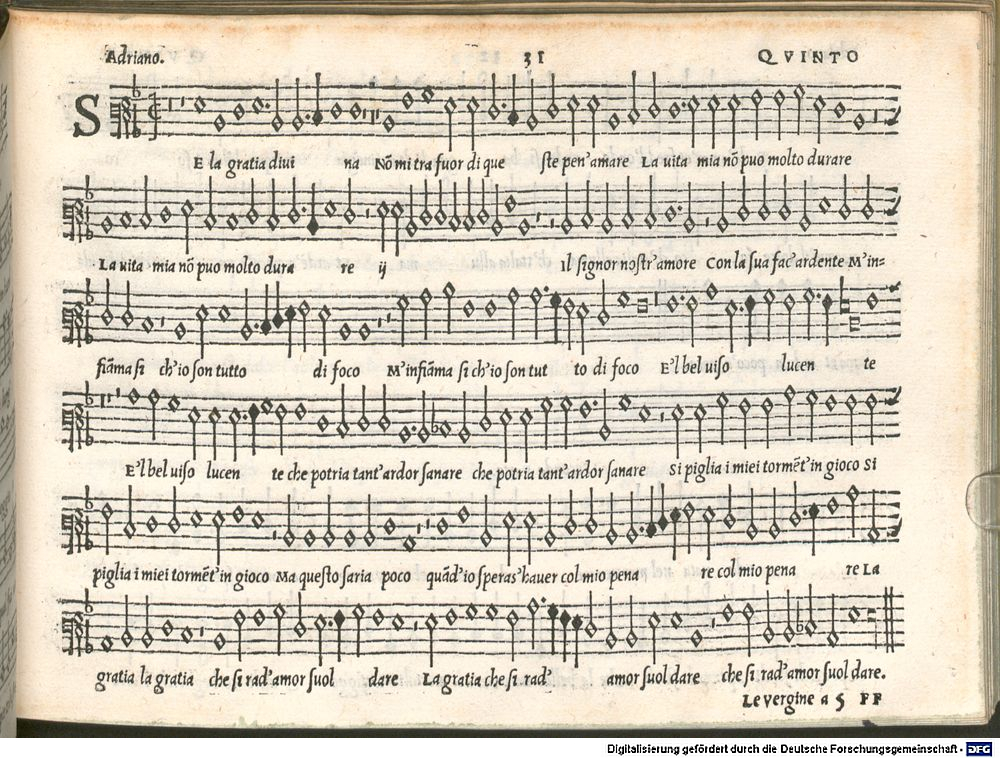 Adriano. 31 QVINTO
SE la gratia diui na Nõ mi tra fuor di que ste pen' amare La uita mia nõ puo molto durare
La uita mia nõ puo molto dura re ij Il signor nostr' amore Con la sua fac' ardente M'in=
fiãma si ch'io son tutto di foco M'infiãma si ch'io son tut to di foco E'l bel uiso lucen te
E'l bel uiso lucen te che potria tant' ardor sanare che potria tant' ardor sanare Si piglia i miei tormẽt' in gioco Si
piglia i miei tormẽt' in gioco Ma questo saria poco quãd' io speras' hauer col mio pena re col mio pena re La
gratia la gratia che si rad' amor suol dare La gratia che si rad' amor suol dare che si rad' amor suol dare.
Le vergine a 5 FF
Digitalisierung gefördert durch die Deutsche Forschungsgemeinschaft - DFG